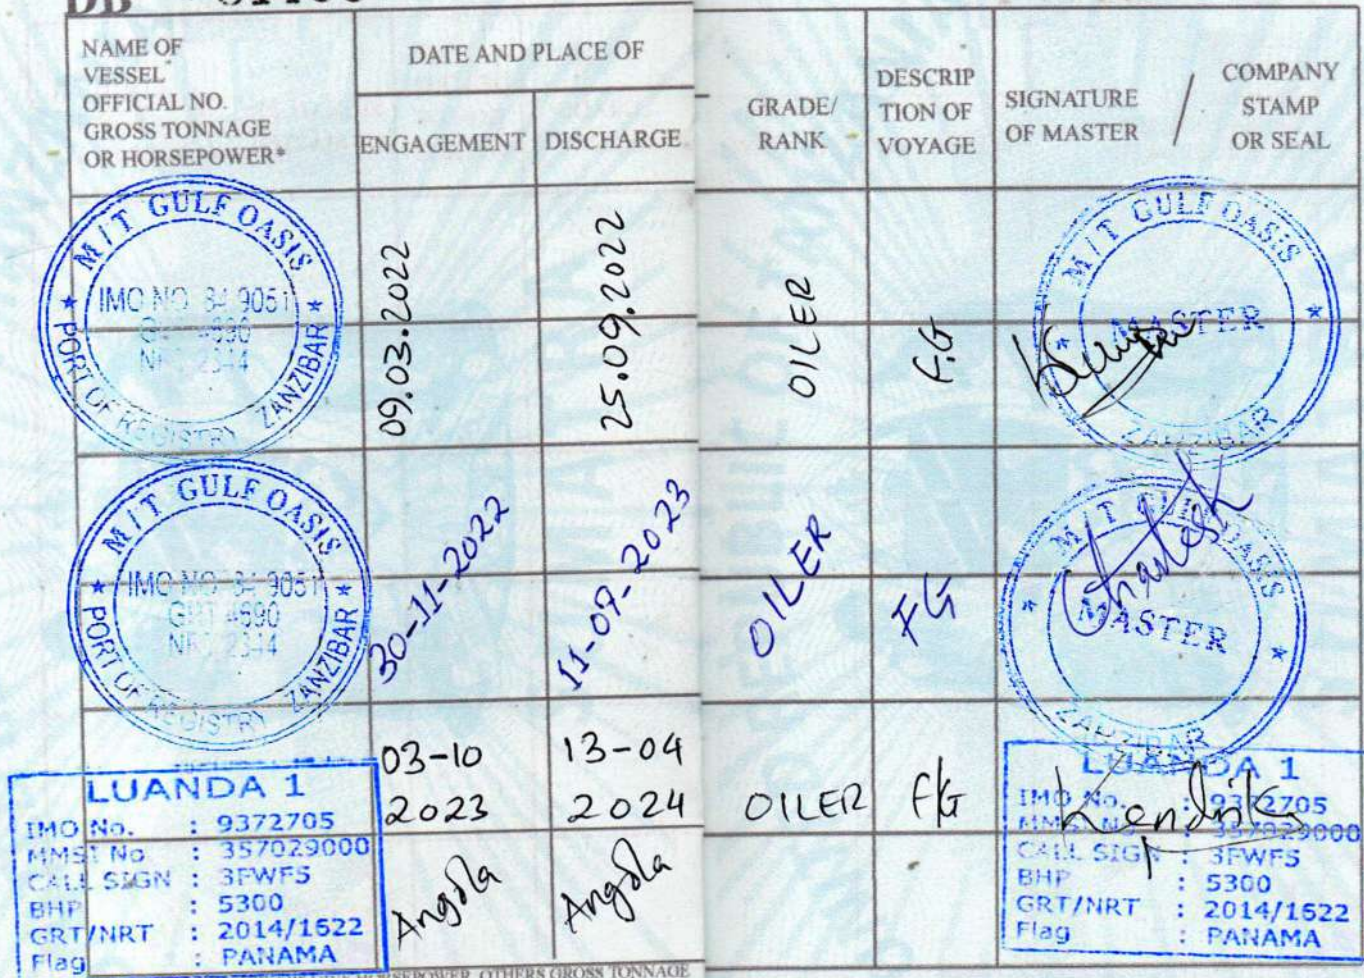 DB
NAME OF
VESSEL
OFFICIAL NO.
GROSS TONNAGE
OR HORSEPOWER*
DATE AND PLACE OF
ENGAGEMENT
DISCHARGE
GRADE/
RANK
DESCRIP
TION OF
VOYAGE
SIGNATURE
OF MASTER
/
COMPANY
STAMP
OR SEAL
M/T GULF OASIS
IMO NO
GRT 4690
NRT 2344
* PORT OF REGISTRY ZANZIBAR *
09.03.2022
25.09.2022
OILER
F.G
M/T GULF OASIS
MASTER
ZANZIBAR
M/T GULF OASIS
IMO NO
GRT 4690
NRT 2344
* PORT OF REGISTRY ZANZIBAR *
30-11-2022
11-07-2023
OILER
FG
M/T GULF OASIS
MASTER
ZANZIBAR
LUANDA 1
IMO No. : 9372705
MMSI No : 357029000
CALL SIGN : 3FWF5
BHP : 5300
GRT/NRT : 2014/1622
Flag : PANAMA
03-10
2023
Angola
13-04
2024
Angola
OILER
FG
LUANDA 1
IMO No. : 9372705
MMSI No : 357029000
CALL SIGN : 3FWF5
BHP : 5300
GRT/NRT : 2014/1622
Flag : PANAMA
Kendrik
HORSEPOWER, OTHERS GROSS TONNAGE